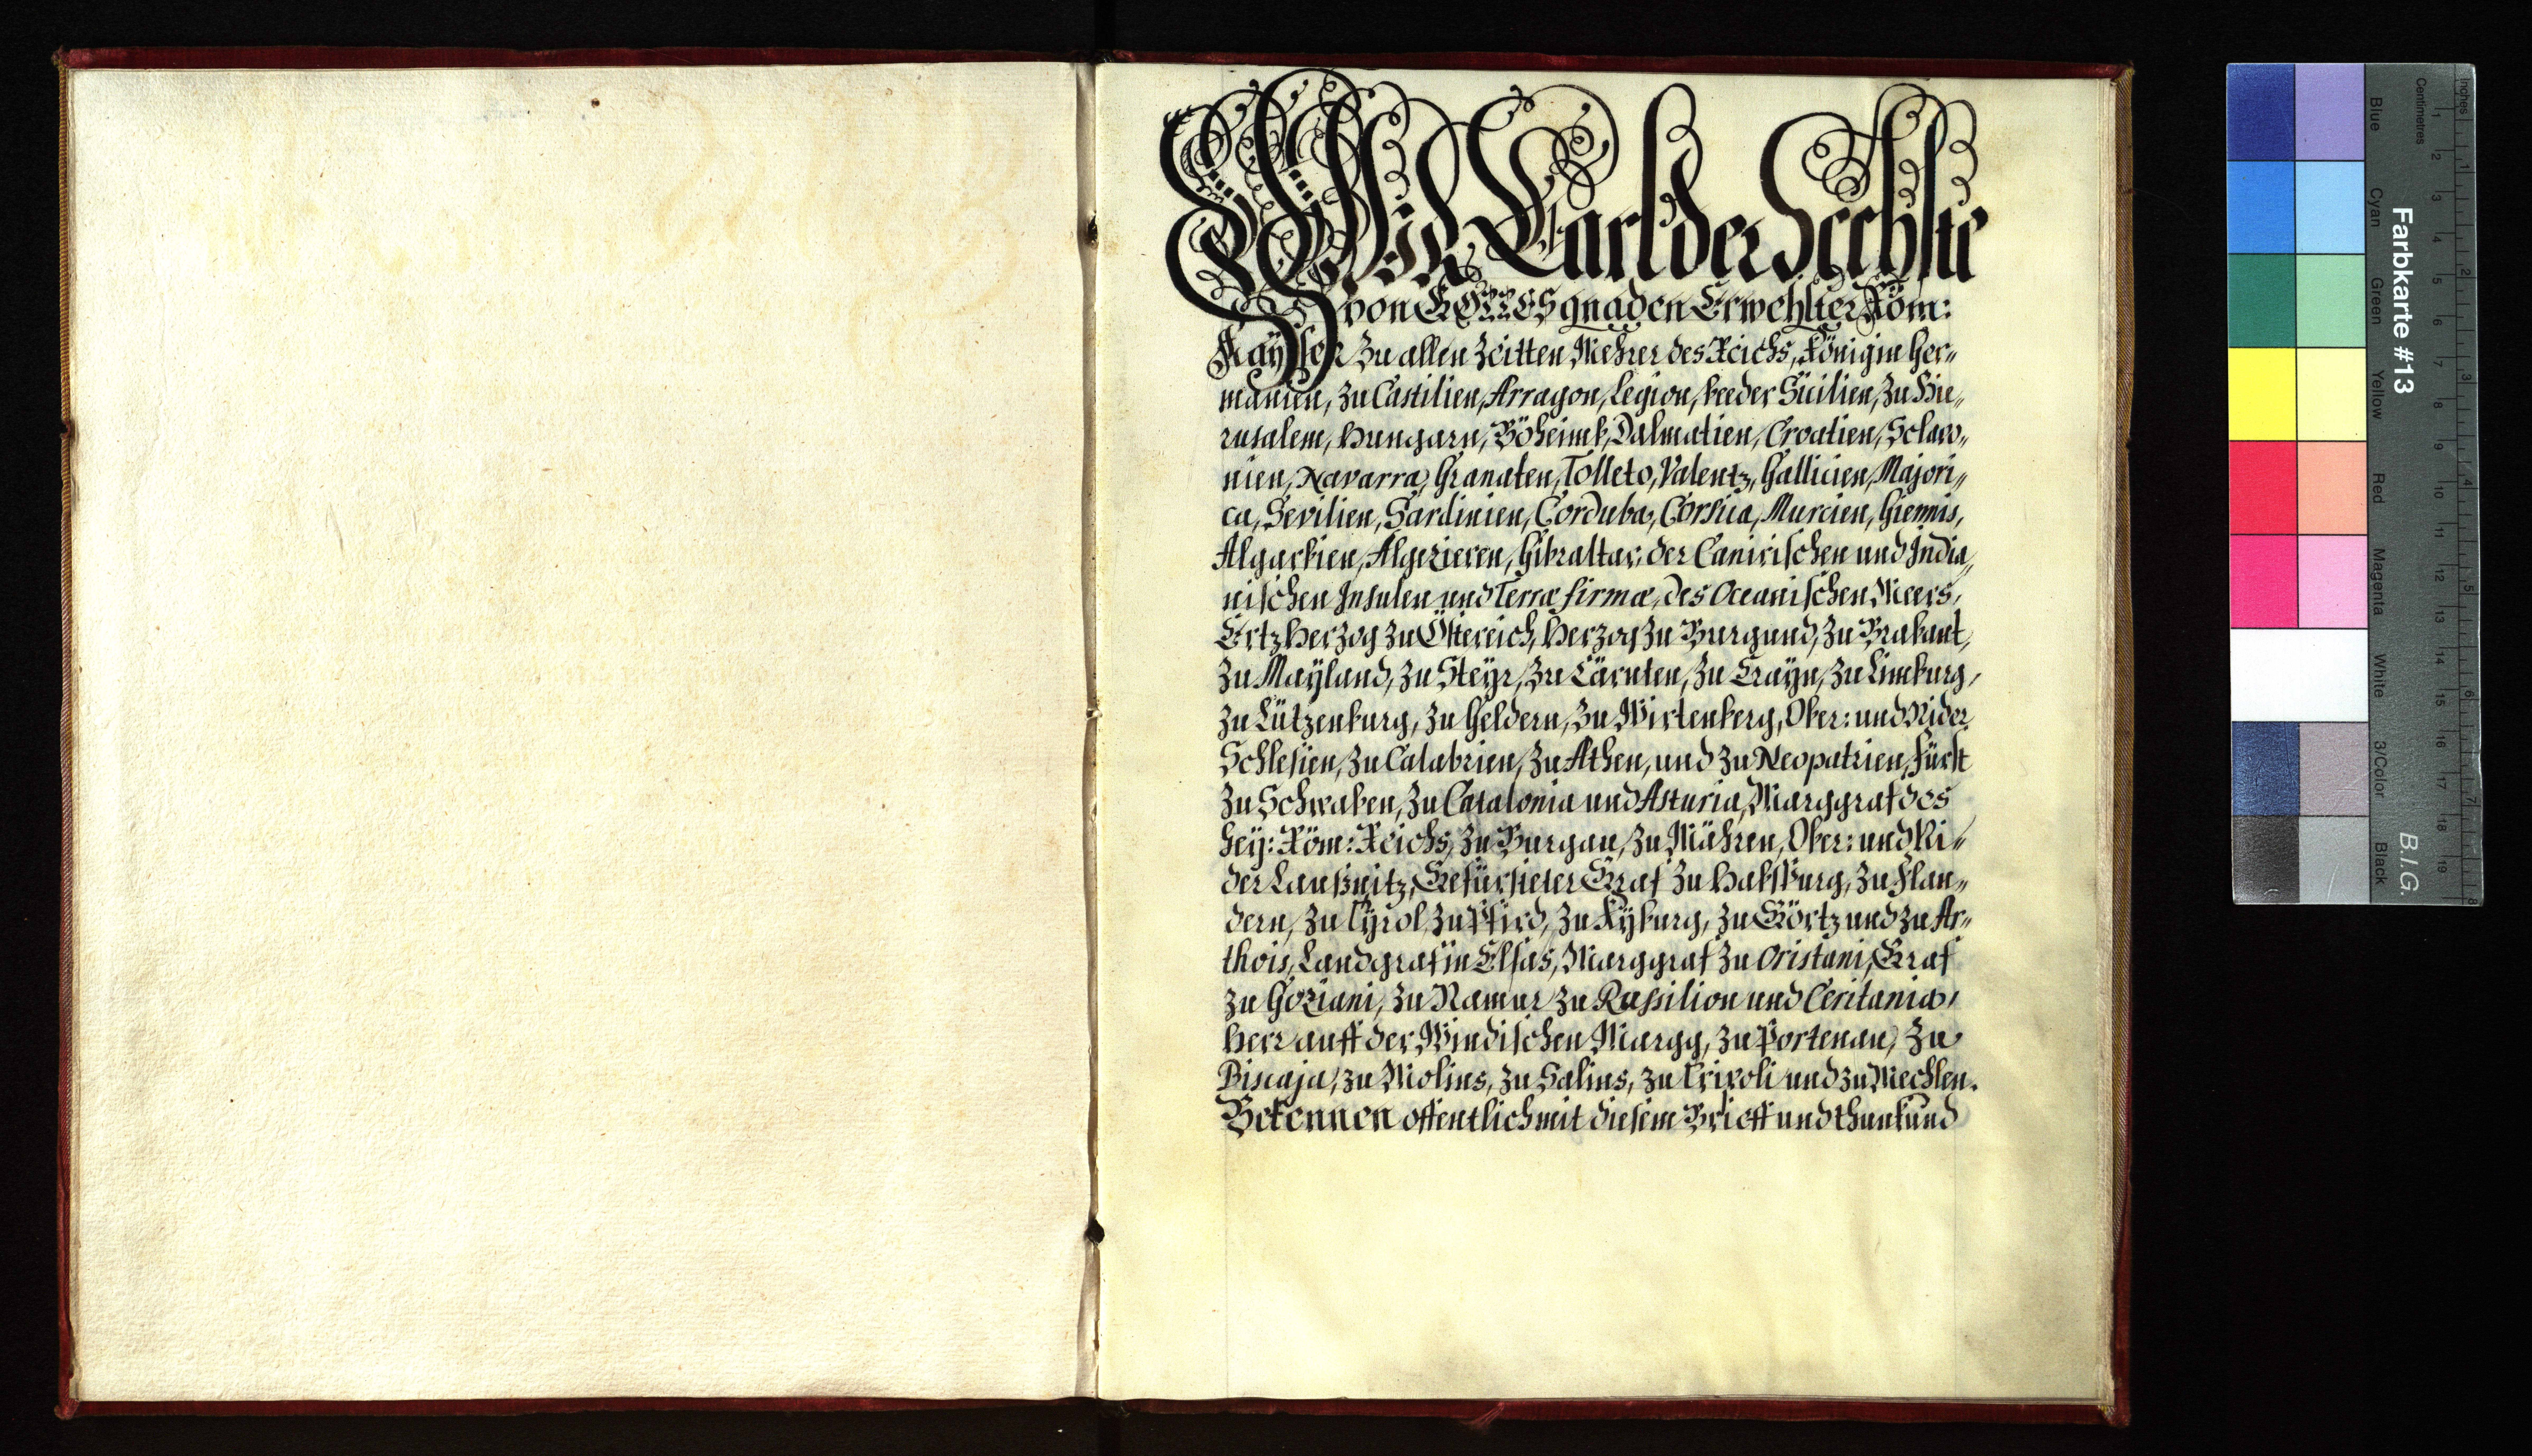 Wir Carl der Sechste
von GOTTES gnaden Erwehlter Röm:
Kaÿser zu allen zeitten Mehrer des Reichs, König in Ger„
manien, zu Castilien, Arragon, Legion, beeder Sicilien, zu Hie„
rusalem, Hungarn, Böheimb, Dalmatien, Croatien, Sclavo„
nien, Navarra, Granaten, Tolleto, Valentz, Gallicien, Majori„
ca, Sevilien, Sardinien, Corduba, Corsica, Murcien, Giennis,
Algarbien, Algezieren, Gibraltar, der Canirischen und India„
nischen Insulen und Terræ firmæ, des Oceanischen Meers,
Ertzherzog zu Östereich, Herzog zu Burgund, zu Brabant,
zu Maÿland, zu Steÿr, zu Cärnten, zu Craÿn, zu Limburg,
zu Lützenburg, zu Geldern, zu Wirtenberg, Ober: und Nider
Schlesien, zu Calabrien, zu Athen, und zu Neopatrien, Fürst
zu Schwaben, zu Catalonia und Asturia, Marggraf des
Heÿ: Röm: Reichs, zu Burgau, zu Mähren, Ober: und Ni„
der Laußnitz, Gefürsteter Graf zu Habsburg, zu Flan„
dern, zu Tÿrol, zu Pfird, zu Kÿburg, zu Görtz und zu Ar„
thois, Landgraf in Elsas, Marggraf zu Oristani, Graf
zu Goziani, zu Namur zu Rassilion und Ceritania,
Herr auff der Windischen Margg, zu Portenau, zu
Biscaja, zu Molins, zu Salins, zu Tripoli und zu Mechlen.
Bekennen offentlich mit diesem Brieff und thun kund
Farbkarte #13
B.I.G.
Blue
Cyan
Green
Yellow
Red
Magenta
White
3/Color
Black
Centimetres
1 2 3 4 5 6 7 8 9 10 11 12 13 14 15 16 17 18 19
Inches
1 2 3 4 5 6 7 8